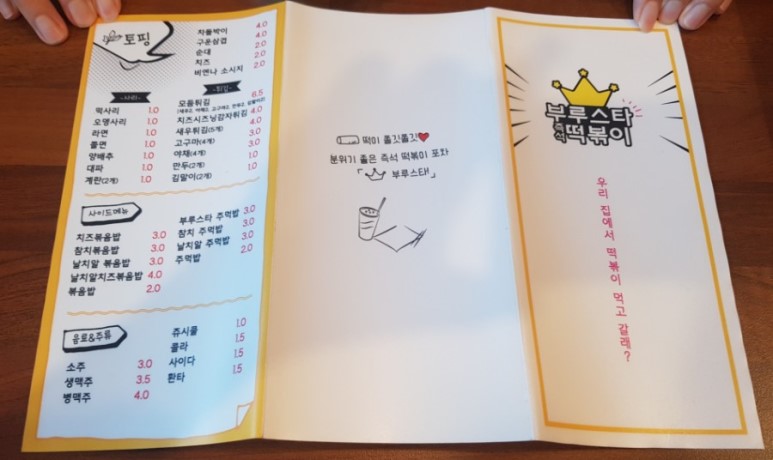 토핑
차돌박이 4.0
구운삼겹 4.0
순대 2.0
치즈 2.0
비엔나 소시지 2.0
-사리-
떡사리 1.0
오뎅사리 1.0
라면 1.0
쫄면 1.0
양배추 1.0
대파 1.0
계란(2개) 1.0
-튀김-
모듬튀김 6.5
치즈시즈닝감자튀김 4.0
새우튀김(5개) 4.0
고구마(4개) 3.0
야채(4개) 3.0
만두(2개) 1.0
김말이(2개) 1.0
사이드메뉴
치즈볶음밥 3.0
참치볶음밥 3.0
날치알 볶음밥 3.0
날치알치즈볶음밥 4.0
볶음밥 2.0
부루스타 주먹밥 3.0
참치 주먹밥 3.0
날치알 주먹밥 3.0
주먹밥 2.0
음료&주류
소주 3.0
생맥주 3.5
병맥주 4.0
쥬시쿨 1.0
콜라 1.5
사이다 1.5
환타 1.5
떡이 쫄깃쫄깃
분위기 좋은 즉석 떡볶이 포차
「부루스타!」
부루스타
즉석 떡볶이
우리 집에서 떡볶이 먹고 갈래?